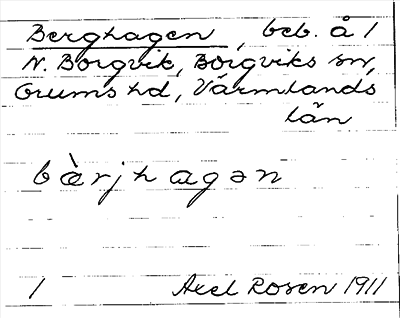 Berghagen, beb. å 1
N. Borgvik, Borgviks sn,
Grums hd, Värmlands
län
bàrjhagən
1 Axel Rosen 1911